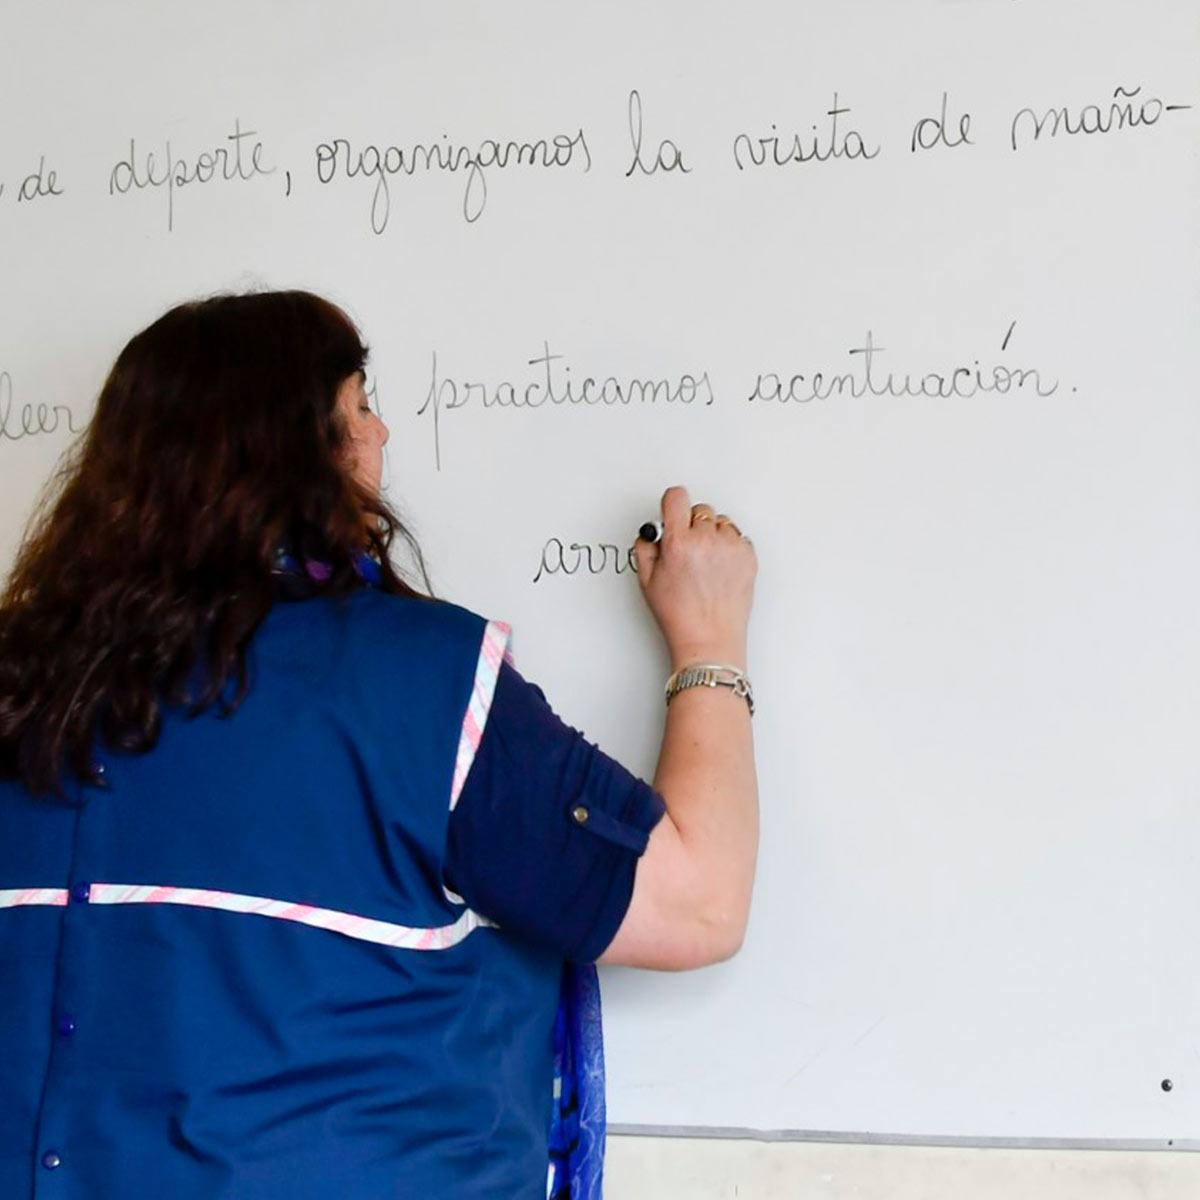 de deporte, organizamos la visita de maño-
leer y practicamos acentuación.
arro